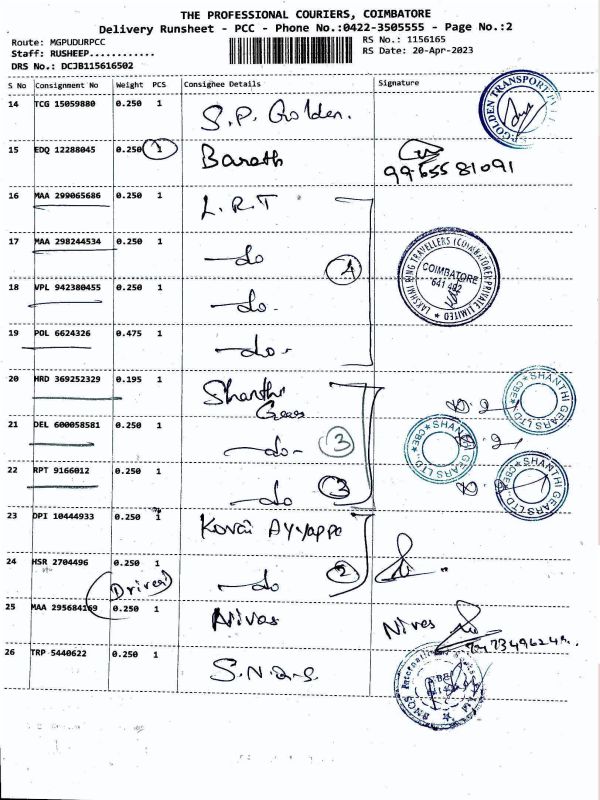 THE PROFESSIONAL COURIERS, COIMBATORE
Delivery Runsheet - PCC - Phone No.:0422-3505555 - Page No.:2
Route: MGPUDURPCC
RS No.: 1156165
Staff: RUSHEEP............
RS Date: 20-Apr-2023
DRS No.: DCJB115616502
S No Consignment No Weight PCS Consignee Details Signature
14 TCG 15059880 0.250 1 S.P. Golden. GOLDEN TRANSPORT
15 EDQ 12288045 0.250 1 Barath 9965581091
16 MAA 299065686 0.250 1 L.R.T
17 MAA 298244534 0.250 1 do 4 LAKSHMI RING TRAVELLERS (COIMBATORE) PRIVATE LIMITED COIMBATORE
18 VPL 942380455 0.250 1 do.
19 POL 6624326 0.475 1 do.
20 HRD 369252329 0.195 1 Shanthi Gears SHANTHI GEARS LTD. CBE
21 DEL 600058581 0.250 1 do 3 SHANTHI GEARS LTD. CBE
22 RPT 9166012 0.250 1 do 3 SHANTHI GEARS LTD.
23 DPI 10444933 0.250 1 Kovai Ayyappa
24 HSR 2704496 0.250 1 do 2
(Driver)
25 MAA 295684169 0.250 1 Nivas Nives
26 TRP 5440622 0.250 1 S.N.Q.S.